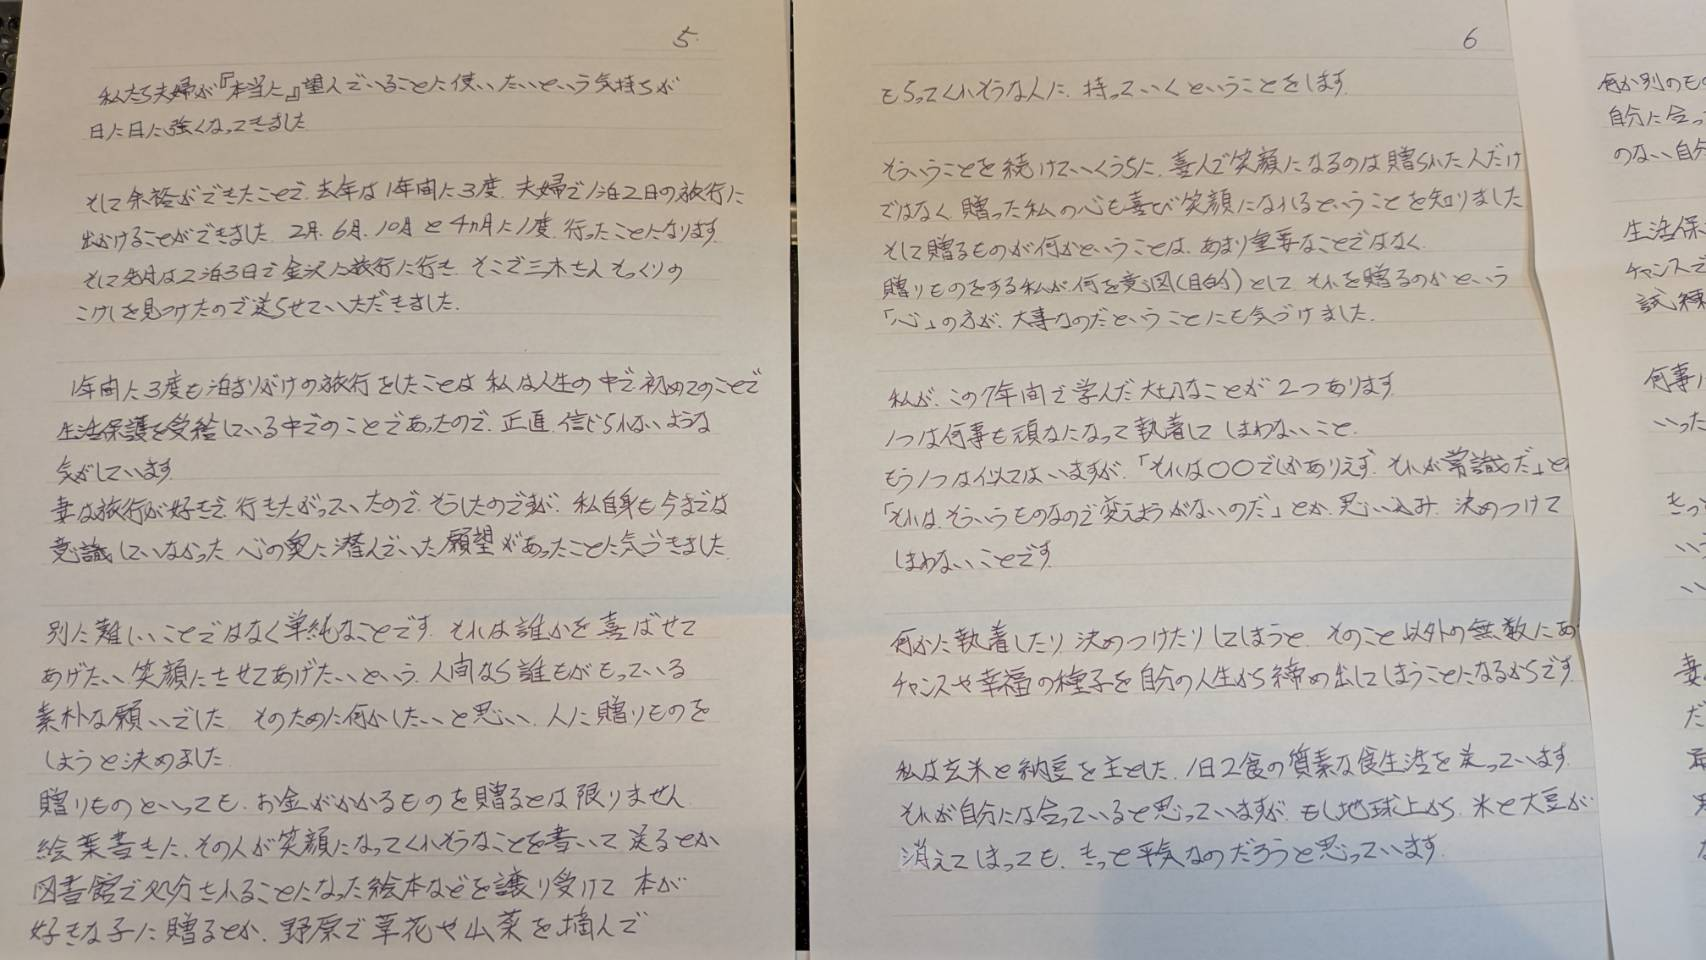 5
私たち夫婦が『本当に』望んでいることに使いたいという気持ちが
日に日に強くなってきました
そして余裕ができたことで、去年は1年間に3度、夫婦で1泊2日の旅行に
出かけることができました 2月、6月、10月と4カ月に1度、行ったことになります
そして先月は2泊3日で金沢に旅行に行き そこで三木さんそっくりの
こけしを見つけたので送らせていただきました。
1年間に3度も泊まりがけの旅行をしたことは 私は人生の中で初めてのことで
生活保護を受給している中でのことであったので、正直、信じられないような
気がしています
妻は旅行が好きで、行きたがっていたので、そうしたのですが、私自身も今までは
意識していなかった 心の奥に潜んでいた願望があったことに気づきました
別に難しいことではなく単純なことです それは誰かを喜ばせて
あげたい、笑顔にさせてあげたいという、人間なら誰もがもっている
素朴な願いでした そのために何かしたいと思い、人に贈りものを
しようと決めました
贈りものといっても、お金がかかるものを贈るとは限りません
絵葉書きに、その人が笑顔になってくれそうなことを書いて送るとか
図書館で処分されることになった絵本などを譲り受けて 本が
好きな子に贈るとか、野原で草花や山菜を摘んで
6
もらってくれそうな人に、持っていくということをします
そういうことを続けていくうちに、喜んで笑顔になるのは贈られた人だけ
ではなく、贈った私の心も喜び笑顔になれるということを知りました
そして贈るものが何かということは、あまり重要なことではなく
贈りものをする私が何を意図(目的)として それを贈るのかという
「心」の方が、大事なのだということにも気づけました。
私が、この7年間で学んだ大切なことが2つあります
1つは何事も頑なになって執着してしまわないこと、
もう1つは似てはいますが、「それは〇〇でしかありえず、それが常識だ」と
「それは、そういうものなので変えようがないのだ」とか、思い込み、決めつけて
しまわないことです
何かに執着したり、決めつけたりしてしまうと、そのこと以外の無数にあ
チャンスや幸福の種子を自分の人生から締め出してしまうことになるからです
私は玄米と納豆を主とした、1日2食の質素な食生活を送っています
それが自分には合っていると思っていますが、もし地球上から、米と大豆が
消えてしまっても、きっと平気なのだろうと思っています
何か別のも
自分に合っ
のない自分
生活保
チャンスで
試練
何事に
いった
きっ
い
い
妻
だ
最